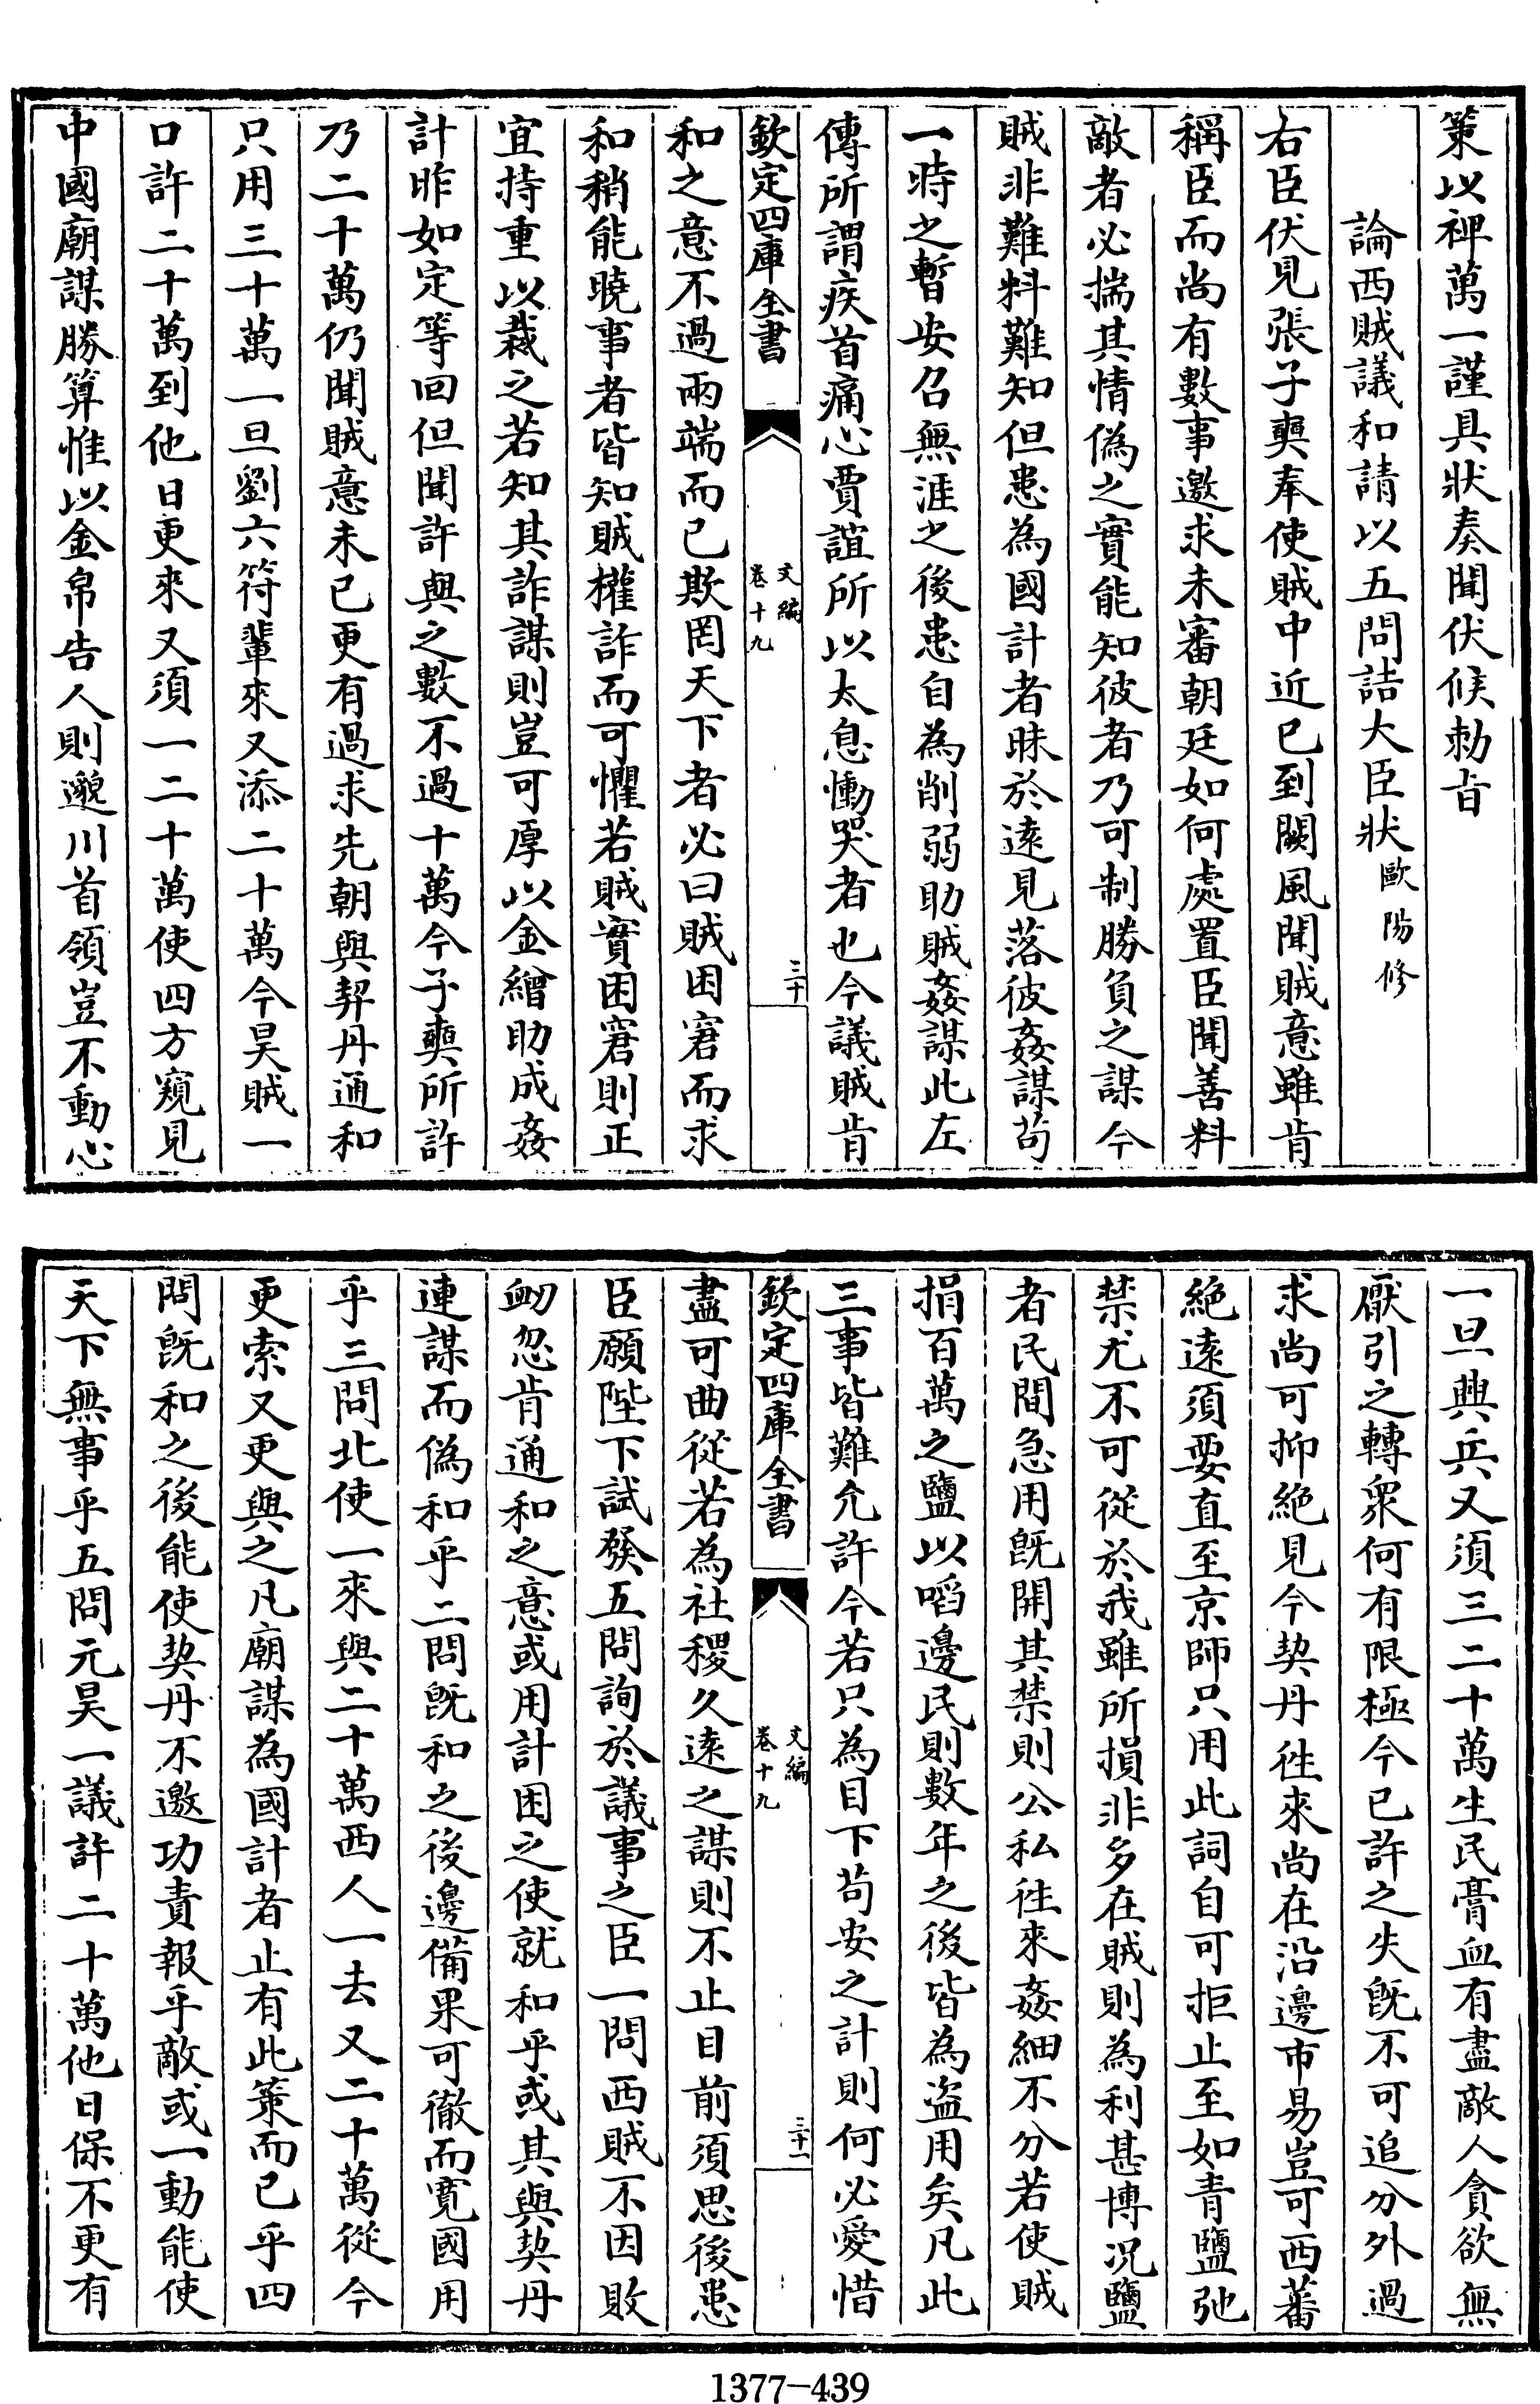 策以裨萬一謹具狀奏聞伏候勅旨
論西賊議和請以五問詰大臣狀歐陽修
右臣伏見張子奭奉使賊中近已到闕風聞賊意雖肯
稱臣而尚有數事邀求未審朝廷如何處置臣聞善料
敵者必揣其情偽之實能知彼者乃可制勝負之謀今
賊非難料難知但患為國計者昧於逺見落彼姦謀苟
一時之暫安召無涯之後患自為削弱助賊姦謀此左
傳所謂疾首痛心賈誼所以太息慟哭者也今議賊肯
欽定四庫全書
文編
卷十九
三十
和之意不過兩端而已欺罔天下者必曰賊困窘而求
和稍能曉事者皆知賊權詐而可懼若賊實困窘則正
宜持重以裁之若知其詐謀則豈可厚以金繒助成姦
計昨如定等回但聞許與之數不過十萬今子奭所許
乃二十萬仍聞賊意未已更有過求先朝與契丹通和
只用三十萬一旦劉六符輩來又添二十萬今昊賊一
口許二十萬到他日更來又須一二十萬使四方窺見
中國廟謀勝算惟以金帛告人則邈川首領豈不動心
一旦興兵又須三二十萬生民膏血有盡敵人貪欲無
厭引之轉衆何有限極今已許之失既不可追分外過
求尚可抑絶見今契丹徃來尚在沿邊市易豈可西蕃
絶逺須要直至京師只用此詞自可拒止至如青鹽弛
禁尤不可從於我雖所損非多在賊則為利甚博况鹽
者民間急用既開其禁則公私徃來姦細不分若使賊
捐百萬之鹽以啗邊民則數年之後皆為盜用矣凡此
三事皆難允許今若只為目下苟安之計則何必愛惜
欽定四庫全書
文編
卷十九
三十一
盡可曲從若為社稷久逺之謀則不止目前須思後患
臣願陛下試發五問詢於議事之臣一問西賊不因敗
衂忽肯通和之意或用計困之使就和乎或其與契丹
連謀而偽和乎二問既和之後邊備果可徹而寛國用
乎三問北使一來與二十萬西人一去又二十萬從今
更索又更與之凡廟謀為國計者止有此策而已乎四
問既和之後能使契丹不邀功責報乎敵或一動能使
天下無事乎五問元昊一議許二十萬他日保不更有
1377-439